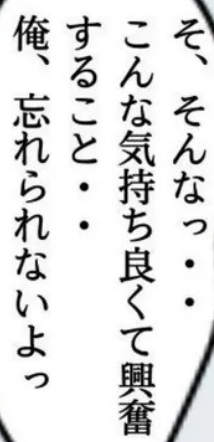 そ、そんなっ・・
こんな気持ち良くて興奮
すること・・
俺、忘れられないよっ